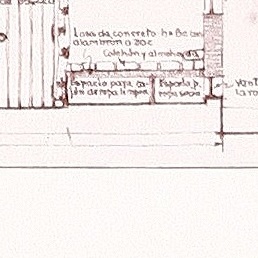 Losa de concreto h=8cm
alambrón a 20c
Colchón y almohada
Espacio para ca-
jón de ropa limpia
Espacio p.
ropa sucia
vent
la ro